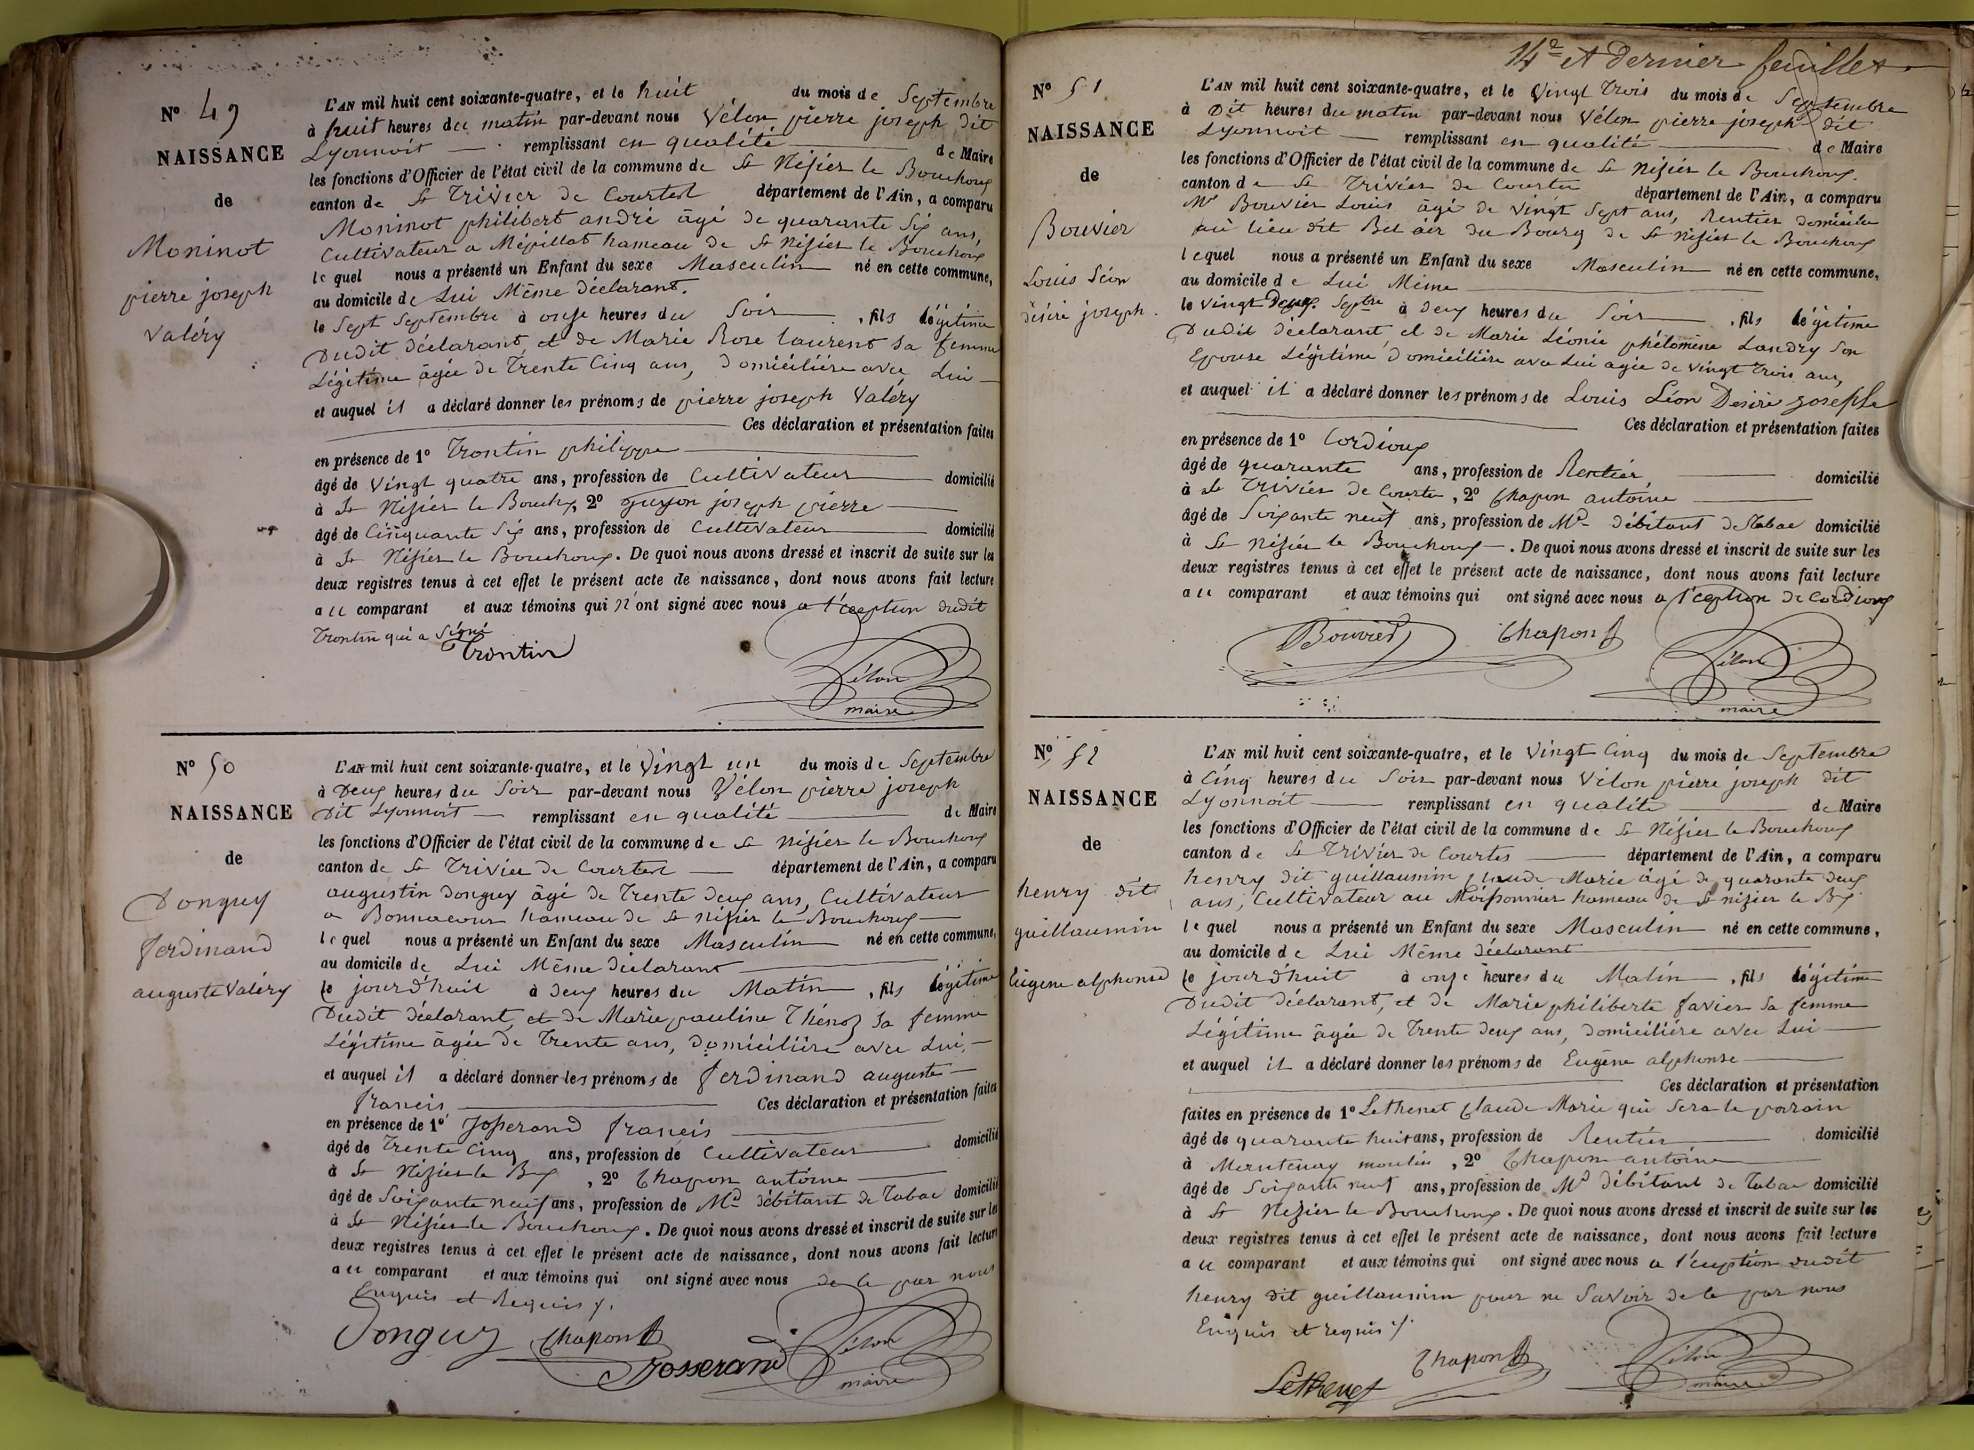 N° 49
NAISSANCE
de
Moninot
pierre joseph
Valéry
L'AN mil huit cent soixante-quatre, et le huit du mois de Septembre
à huit heures du matin par-devant nous Vélon pierre joseph dit
Lyonnoit remplissant en qualité de Maire
les fonctions d'Officier de l'état civil de la commune de St Nizier le Bouchoux
canton de St Trivier de Courtes département de l'Ain, a comparu
Moninot philibert andré âgé de quarante Six ans,
Cultivateur a Mépillat hameau de St Nizier le Bouchoux
lequel nous a présenté un Enfant du sexe Masculin né en cette commune,
au domicile de Lui Même déclarant.
le Sept Septembre à onze heures du Soir, fils légitime
Dudit déclarant et de Marie Rose Laurent Sa femme
Légitime âgée de Trente Cinq ans, domiciliére avec Lui
et auquel il a déclaré donner les prénoms de pierre joseph Valéry
Ces déclaration et présentation faites
en présence de 1° Trontin philippe
âgé de Vingt quatre ans, profession de Cultivateur domicilié
à St Nizier le Bouchx, 2° Guyon joseph pierre
âgé de Cinquante Six ans, profession de Cultivateur domicilié
à St Nizier le Bouchoux. De quoi nous avons dressé et inscrit de suite sur les
deux registres tenus à cet effet le présent acte de naissance, dont nous avons fait lecture
au comparant et aux témoins qui n'ont signé avec nous a l'éception dudit
Trontin qui a Signé
Trontin
Vélon
maire
N° 50
NAISSANCE
de
Donguy
ferdinand
auguste Valéry
L'AN mil huit cent soixante-quatre, et le Vingt un du mois de Septembre
à Deux heures du Soir par-devant nous Vélon pierre joseph
Dit Lyonnoit remplissant en qualité de Maire
les fonctions d'Officier de l'état civil de la commune de St Nizier le Bouchoux
canton de St Trivier de Courtes département de l'Ain, a comparu
augustin Donguy âgé de Trente deux ans, Cultivateur
a Bonnacour hameau de St Nizier le Bouchoux
lequel nous a présenté un Enfant du sexe Masculin né en cette commune,
au domicile de Lui Même déclarant
le jourd'huit à deux heures du Matin, fils légitime
Dudit déclarant, et de Marie pauline Thénoz Sa femme
Légitime âgée de Trente ans, domiciliére avec Lui,
et auquel il a déclaré donner les prénoms de ferdinand auguste
francis Ces déclaration et présentation faites
en présence de 1° Josserand francis
âgé de Trente Cinq ans, profession de Cultivateur domicilié
à St Nizier le Bx, 2° Chapon antoine
âgé de Soixante neuf ans, profession de Md débitant de Tabac domicilié
à St Nizier le Bouchoux. De quoi nous avons dressé et inscrit de suite sur les
deux registres tenus à cet effet le présent acte de naissance, dont nous avons fait lecture
au comparant et aux témoins qui ont signé avec nous de ce par nous
Enquis et Requis
Donguy Chapon Josserand
Vélon
maire
14e et dernier feuillet
N° 51
NAISSANCE
de
Bouvier
Louis Léon
désiré joseph.
L'AN mil huit cent soixante-quatre, et le Vingt Trois du mois de Septembre
à Dit heures du matin par-devant nous Vélon pierre joseph dit
Lyonnoit remplissant en qualité de Maire
les fonctions d'Officier de l'état civil de la commune de St Nizier le Bouchoux.
canton de St Trivier de Courtes département de l'Ain, a comparu
Mr Bouvier Louis âgé de Vingt Sept ans, Rentier domicilié
au lieu dit Bel air du Bourg de St Nizier le Bouchoux
lequel nous a présenté un Enfant du sexe Masculin né en cette commune,
au domicile de Lui Même
le Vingt Deux Septbre à deux heures du Soir, fils légitime
Dudit déclarant et de Marie Léonie philomène Landry Son
Epouse Légitime domiciliére avec Lui agée de Vingt Trois ans,
et auquel il a déclaré donner les prénoms de Louis Léon Désiré joseph
Ces déclaration et présentation faites
en présence de 1° Cordioux
âgé de quarante ans, profession de Rentier domicilié
à St Trivier de Courtes, 2° Chapon antoine
âgé de Soixante neuf ans, profession de Md débitant de Tabac domicilié
à St Nizier le Bouchoux. De quoi nous avons dressé et inscrit de suite sur les
deux registres tenus à cet effet le présent acte de naissance, dont nous avons fait lecture
au comparant et aux témoins qui ont signé avec nous a l'eption de Cordioux
Bouvier Chapon
Vélon
maire
N° 52
NAISSANCE
de
henry dit
guillaumin
Eugène alphonse
L'AN mil huit cent soixante-quatre, et le Vingt Cinq du mois de Septembre
à Cinq heures du Soir par-devant nous Vélon pierre joseph dit
Lyonnoit remplissant en qualité de Maire
les fonctions d'Officier de l'état civil de la commune de St Nizier le Bouchoux
canton de St Trivier de Courtes département de l'Ain, a comparu
henry dit guillaumin Claude Marie âgé de quarante deux
ans, Cultivateur au Moissonnier hameau de St nizier le Bx
lequel nous a présenté un Enfant du sexe Masculin né en cette commune,
au domicile de Lui Même déclarant
le jourd'huit à onze heures du Matin, fils légitime
Dudit déclarant, et de Marie philiberte favier Sa femme
Légitime âgée de Trente deux ans, domiciliére avec Lui
et auquel il a déclaré donner les prénoms de Eugène alphonse
Ces déclaration et présentation
faites en présence de 1° Lethenet Claude Marie qui Sera le parain
âgé de quarante huit ans, profession de Rentier domicilié
à Mantenay moulin, 2° Chapon antoine
âgé de Soixante neuf ans, profession de Md débitant de Tabac domicilié
à St Nizier le Bouchoux. De quoi nous avons dressé et inscrit de suite sur les
deux registres tenus à cet effet le présent acte de naissance, dont nous avons fait lecture
au comparant et aux témoins qui ont signé avec nous a l'euption dudit
henry dit guillaumin pour ne Savoir de ce par nous
Enquis et requis
Lethenet Chapon
Vélon
maire